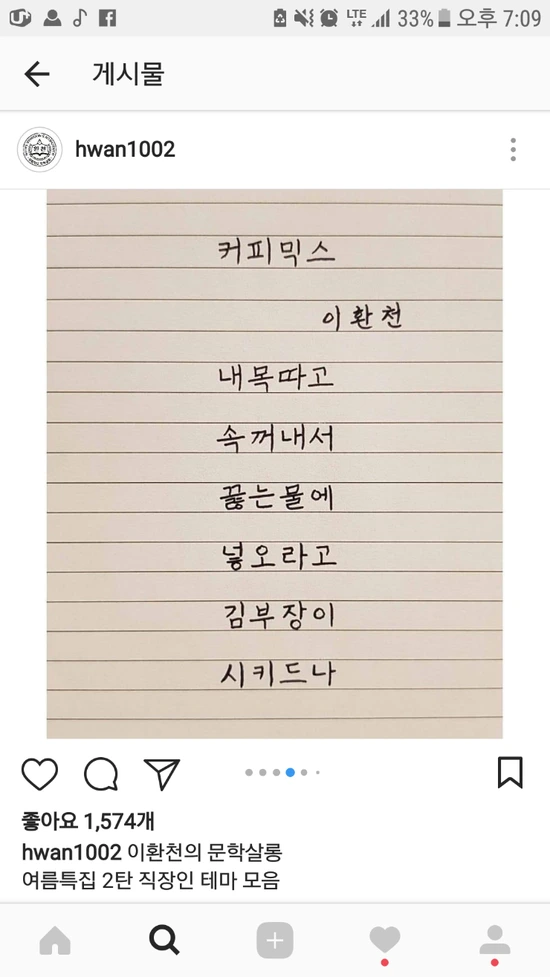 LTE 33% 오후 7:09
게시물
hwan1002
커피믹스
이환천
내목따고
속꺼내서
끓는물에
넣오라고
김부장이
시키드나
좋아요 1,574개
hwan1002 이환천의 문학살롱
여름특집 2탄 직장인 테마 모음